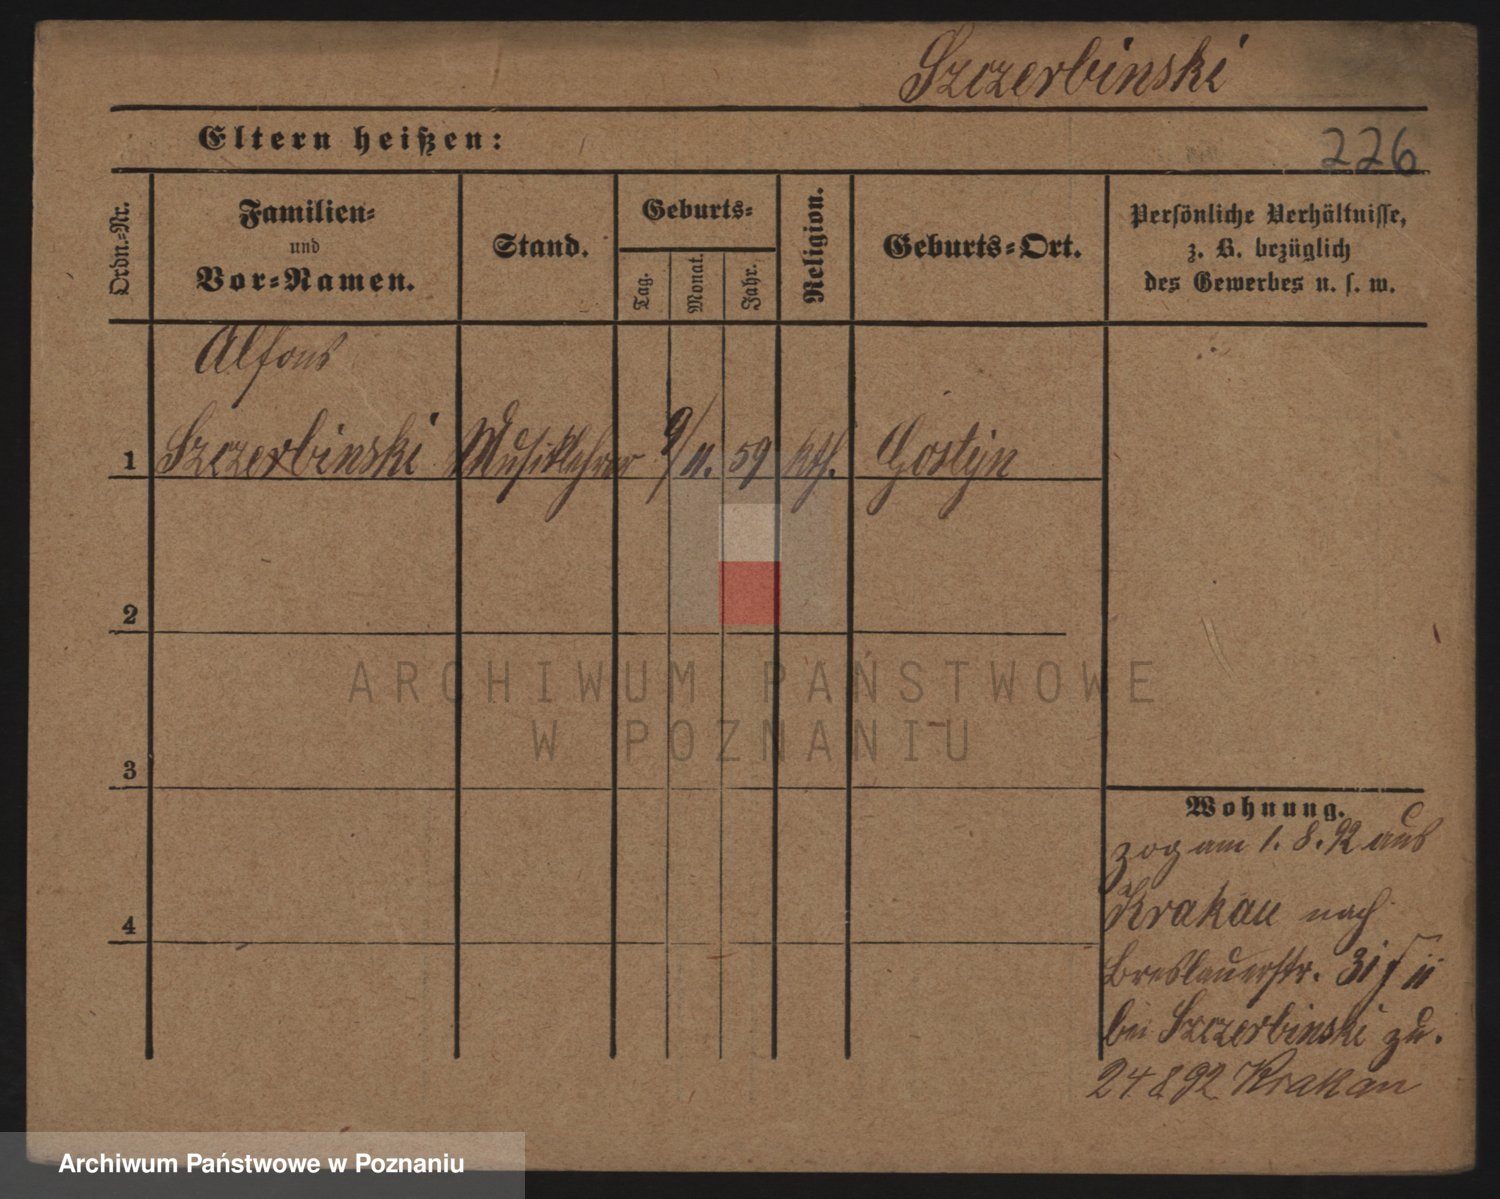 Szczerbinski
Eltern heißen:
226
Ordn.-Nr.
Familien-
und
Vor-Namen.
Stand.
Geburts-
Tag.
Monat.
Jahr.
Religion.
Geburts-Ort.
Persönliche Verhältnisse,
z. B. bezüglich
des Gewerbes u. s. w.
Alfons
1 Szczerbinski Musiklehrer 9/ 11. 59 kth. Gostyn
2
3
4
Wohnung.
zog am 1. 8. 92 aus
Krakau nach
Breslauerstr. 31 / II
bei Szczerbinski zu.
24 8 92 Krakau
ARCHIWUM PAŃSTWOWE
W POZNANIU
Archiwum Państwowe w Poznaniu